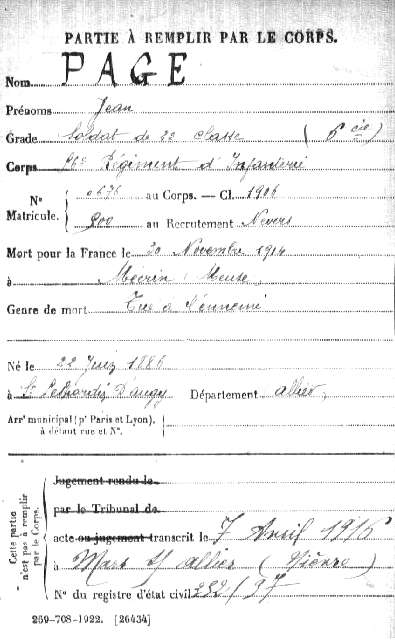 PARTIE À REMPLIR PAR LE CORPS.
Nom PAGE
Prénoms Jean
Grade Soldat de 2e Classe (6 cie)
Corps Régiment d'Infanterie
N° Matricule. { au Corps. — Cl. 1906
900 au Recutement Nevers
Mort pour la France le 20 Novembre 1914
à Mecrin (Meuse)
Genre de mort Tué à l'ennemi
Né le 22 Juin 1886
à St Léopardin D'augy Département allier
Arrt municipal (pr Paris et Lyon),
à défaut rue et N°.
Cette partie n'est pas à remplir par le Corps.
Jugement rendu le
par le Tribunal de
acte ou jugement transcrit le 7 Avril 1916
à Mars s/ allier (Nièvre)
N° du registre d'état civil 232/97
259-708-1922. [26434]